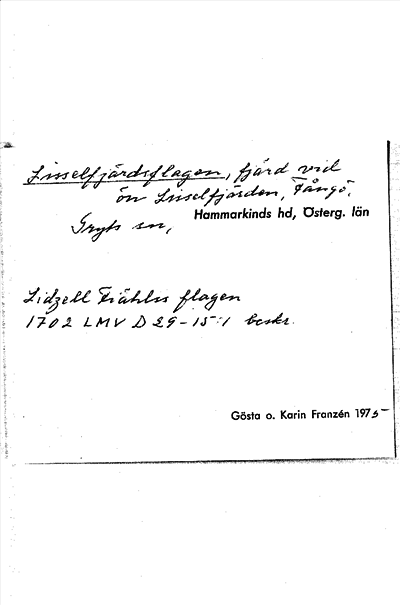 Lisselfjärdsflagen, fjärd vid
ön Lisselfjärden, Fångö,
Gryts sn,
Hammarkinds hd, Österg. län
Lidzell Fiählss flagen
1702 LMV D 29-15:1 beskr.
Gösta o. Karin Franzén 1975